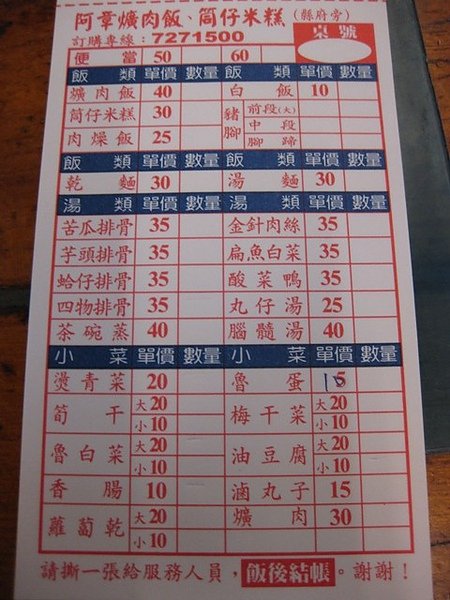 阿章爌肉飯、筒仔米糕(縣府旁)
訂購專線：7271500 桌號
便當 50 60
飯類 單價 數量 飯類 單價 數量
爌肉飯 40 白飯 10
筒仔米糕 30 豬腳 前段(大)
中段
肉燥飯 25 腳蹄
飯類 單價 數量 飯類 單價 數量
乾麵 30 湯麵 30
湯類 單價 數量 湯類 單價 數量
苦瓜排骨 35 金針肉絲 35
芋頭排骨 35 扁魚白菜 35
蛤仔排骨 35 酸菜鴨 35
四物排骨 35 丸仔湯 25
茶碗蒸 40 腦髓湯 40
小菜 單價 數量 小菜 單價 數量
燙青菜 20 魯蛋 10
筍干 大20 小10 梅干菜 大20 小10
魯白菜 大20 小10 油豆腐 大20 小10
香腸 10 滷丸子 15
蘿蔔乾 大20 小10 爌肉 30
請撕一張給服務人員，飯後結帳。謝謝！